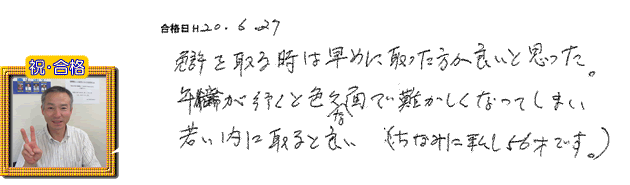 合格日H20.6.27
祝・合格
免許を取る時は早めに取った方が良いと思った。
年齢が行くと色々な面で難かしくなってしまい
若い内に取ると良い (ちなみに私し56才です。)